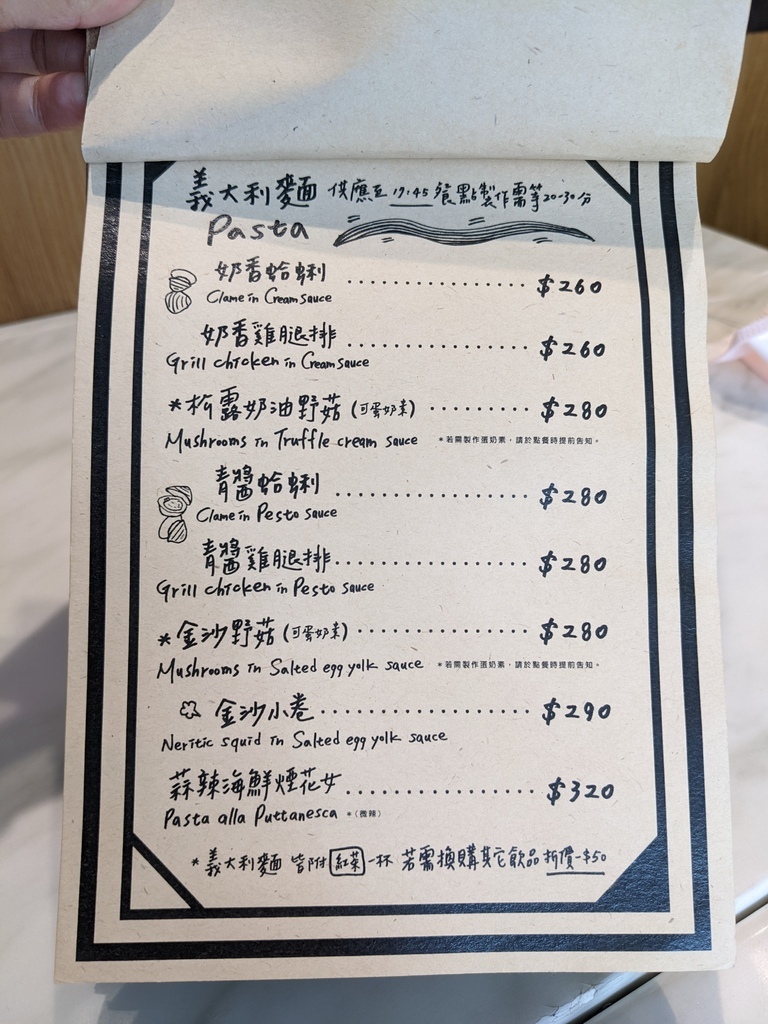 義大利麵 供應至 17:45 餐點製作需等20-30分
Pasta
奶香蛤蜊 $260
Clame in Cream sauce
奶香雞腿排 $260
Grill chicken in Cream sauce
*松露奶油野菇(可蛋奶素) $280
Mushrooms in Truffle cream sauce *若需製作蛋奶素,請於點餐時提前告知。
青醬蛤蜊 $280
Clame in Pesto sauce
青醬雞腿排 $280
Grill chicken in Pesto sauce
*金沙野菇(可蛋奶素) $280
Mushrooms in Salted egg yolk sauce *若需製作蛋奶素,請於點餐時提前告知。
金沙小卷 $290
Neritic squid in Salted egg yolk sauce
蒜辣海鮮煙花女 $320
Pasta alla Puttanesca *(微辣)
*義大利麵 皆附紅茶一杯 若需換購其它飲品折價-$50